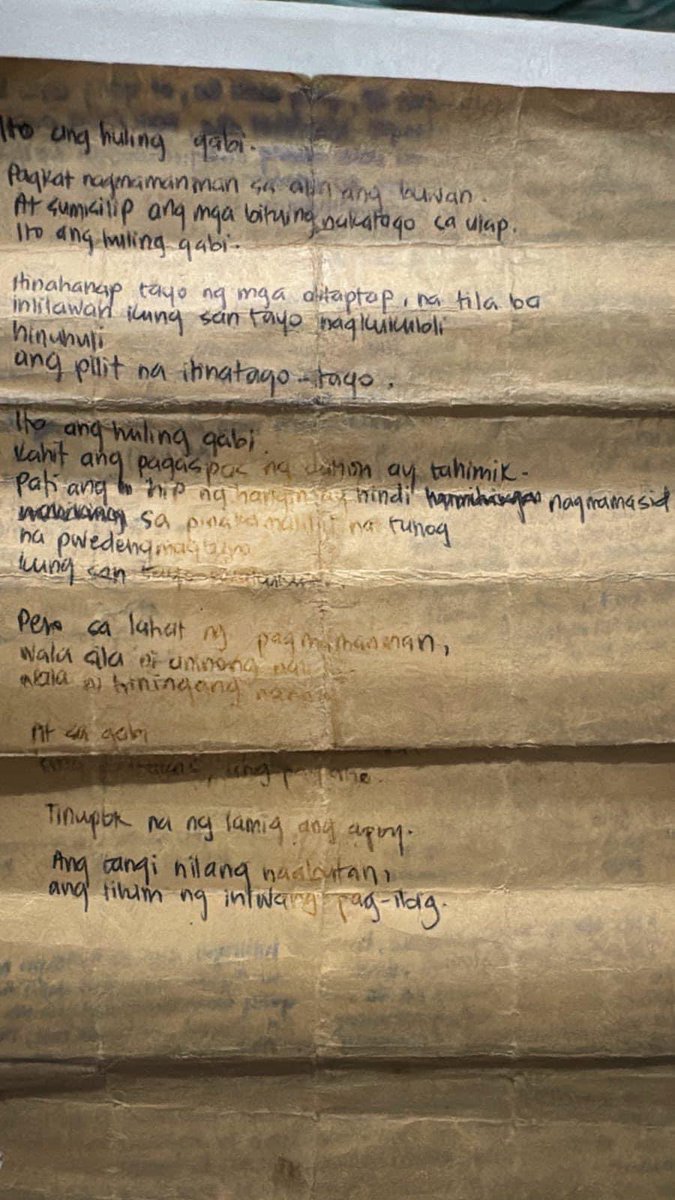 Ito ang huling gabi.
Pagkat nagmamanman sa atin ang buwan.
At sumisilip ang mga bituing nakatago sa ulap.
Ito ang huling gabi.
Hinahanap tayo ng mga alitaptap, na tila ba
iniilawan kung san tayo nagkukubli
hinuhuli
ang pilit na itinatago-tago.
Ito ang huling gabi.
Kahit ang pagaspas ng dahon ay tahimik.
Pati ang ihip ng hangin ay hindi nagmamasid
sa pinakamaliit na tunog
na pwedeng magturo
kung san
Pero sa lahat ng pagmamanman,
wala sila ni aninong
wala ni hiningang
At sa gabi
ang
Tinupok na ng lamig ang apoy.
Ang tangi nilang naabutan,
ang lihim ng iniwang pag-ibig.